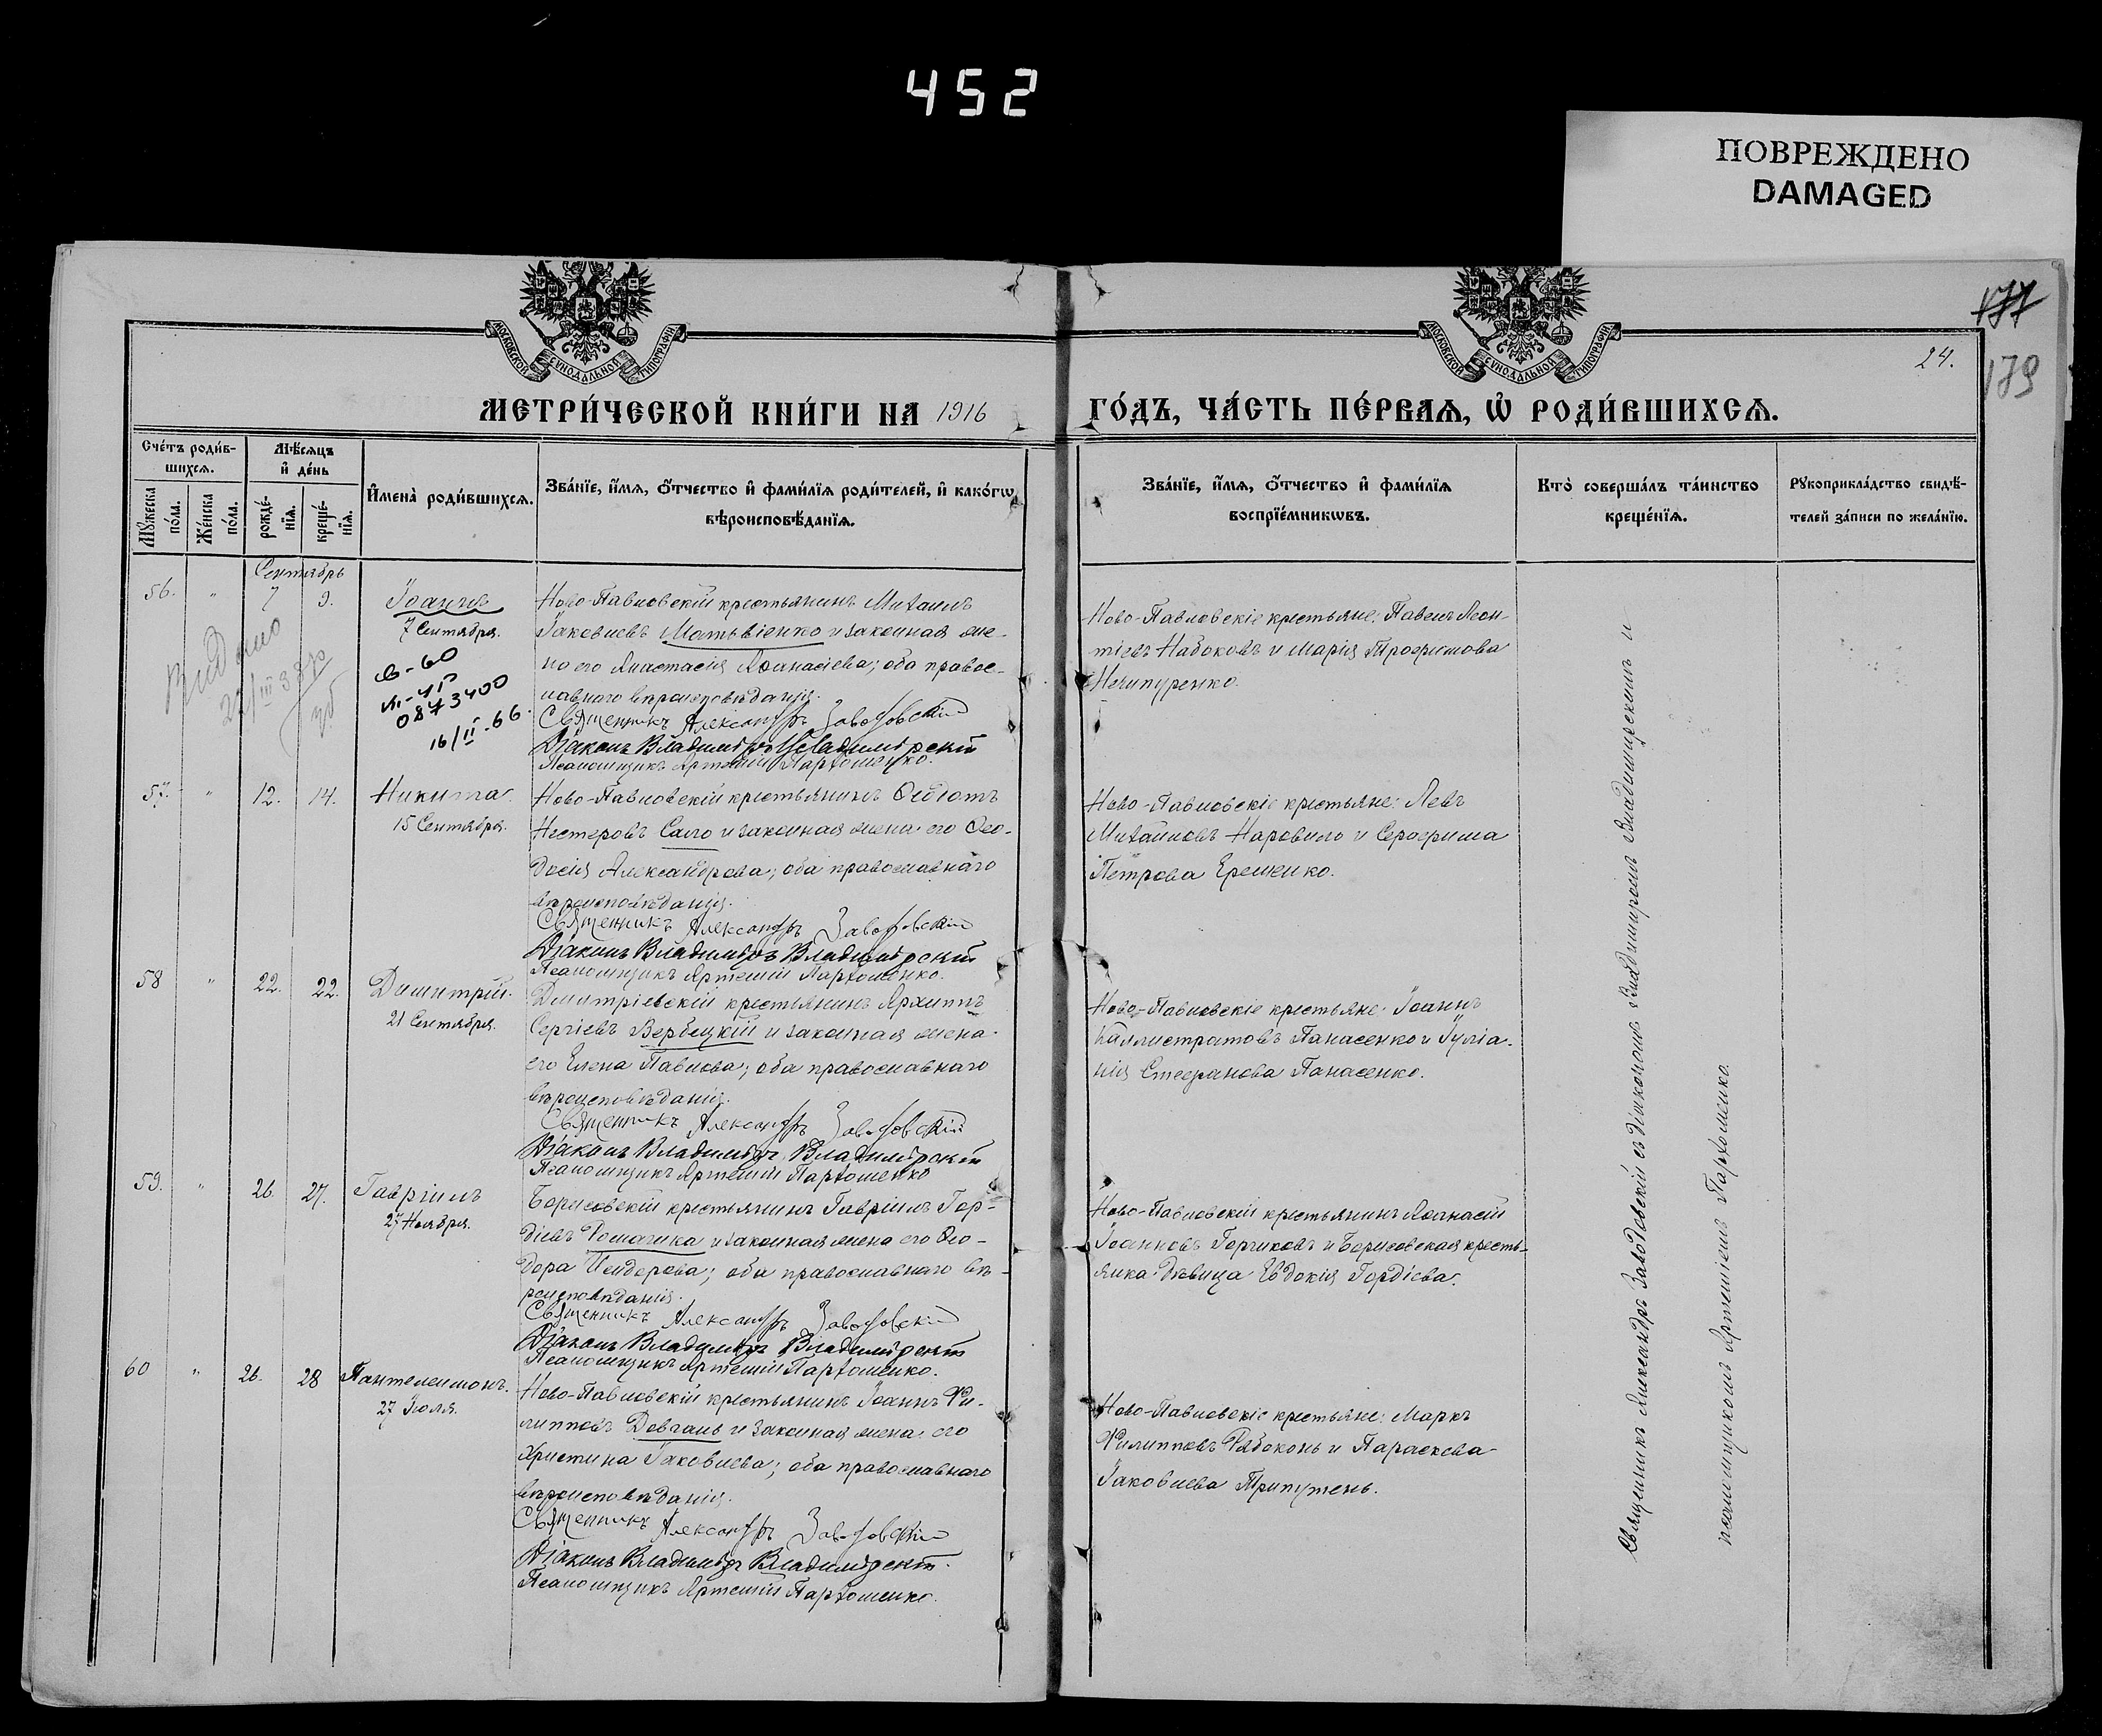 452
ПОВРЕЖДЕНО
DAMAGED
177
179
24.
МОСКОВСКОЙ СѴНОДАЛЬНОЙ ТИПОГРАФІИ
МОСКОВСКОЙ СѴНОДАЛЬНОЙ ТИПОГРАФІИ
МЕТРИ́ЧЕСКОЙ КНИ́ГИ НА 1916
ГО́ДЪ, ЧА́СТЬ ПЕ́РВАѦ, Ѡ҆ РОДИ́ВШИХСѦ.
Сче́тъ роди́в-
шихсѧ.
Мꙋ́жеска по́ла.
Же́нска по́ла.
Мѣ́сѧцъ
и҆ де́нь
рожде́-
нїѧ.
креще́-
нїѧ.
И҆мена̀ роди́вшихсѧ.
Зва́нїе, и҆́мѧ, ѻ҆́тчество и҆ фами́лїѧ роди́телей, и҆ како́гѡ
вѣроисповѣ́данїѧ.
Зва́нїе, и҆́мѧ, ѻ҆́тчество и҆ фами́лїѧ
воспрїе́мникѡвъ.
Кто̀ соверша́лъ та́инство
креще́нїѧ.
Рꙋкоприкла́дство свидѣ́-
телей за́писи по жела́нїю.
Сентябрь
56. " 7 9. Іоаннъ
7 Сентября.
Видано
22/III 38 р
0873400
16/II-66.
Ново-Павловскій крестьянинъ Михаилъ
Іаковлевъ Матьвіенко и законная же-
на его Анастасія Аѳанасіева; оба правос-
лавнаго вѣроисповѣданія.
Священникъ Александръ Заводовскій
Діаконъ Владиміръ Владимірскій
Псаломщикъ Артемій Пархоменко.
Ново-Павловскіе крестьяне: Павелъ Леон-
тіевъ Набоковъ и Марія Трофимова
Нечипуренко.
57. " 12. 14. Никита.
15 Сентября.
Ново-Павловскій крестьянинъ Ѳеотъ
Нестеровъ Сало и законная жена его Ѳео-
досія Александрова; оба православнаго
вѣроисповѣданія.
Священникъ Александръ Заводовскій
Діаконъ Владиміръ Владимірскій
Псаломщикъ Артемій Пархоменко.
Ново-Павловскіе крестьяне: Левъ
Михаиловъ Наровило и Серафима
Петрова Ерешенко.
58 " 22. 22. Димитрій.
21 Сентября.
Дмитріевскій крестьянинъ Архиппъ
Сергіевъ Вербецкій и законная жена
его Елена Павлова; оба православнаго
вѣроисповѣданія.
Священникъ Александръ Заводовскій
Діаконъ Владиміръ Владимірскій
Псаломщикъ Артемій Пархоменко
Ново-Павловскіе крестьяне: Іоаннъ
Каллистратовъ Панасенко и Іуліа-
нія Стефанова Панасенко.
59. " 26 27. Гавріилъ
27 Ноября.
Борисовскій крестьянинъ Гавріилъ Гор-
діевъ Ромашка и законная жена его Ѳео-
дора Исидорова; оба православнаго вѣ-
роисповѣданія.
Священникъ Александръ Заводовскій
Діаконъ Владиміръ Владимірскій
Псаломщикъ Артемій Пархоменко.
Ново-Павловскій крестьянинъ Аѳанасій
Іоанновъ Горчиковъ и Борисовская кресть-
янка девица Евдокія Гордіева.
60 " 26. 28 Пантелеимонъ.
27 Іюля.
Ново-Павловскій крестьянинъ Іоаннъ Фи-
липповъ Довгань и законная жена его
Христина Іаковлева; оба православнаго
вѣроисповѣданія.
Священникъ Александръ Заводовскій
Діаконъ Владиміръ Владимірскій.
Псаломщикъ Артемій Пархоменко.
Ново-Павловскіе крестьяне: Маркъ
Филипповъ Рябоконь и Параскева
Іаковлева Трипутень.
Священникъ Александръ Заводовскій съ діакономъ Владиміромъ Владимірскимъ и
псаломщикомъ Артеміемъ Пархоменко.